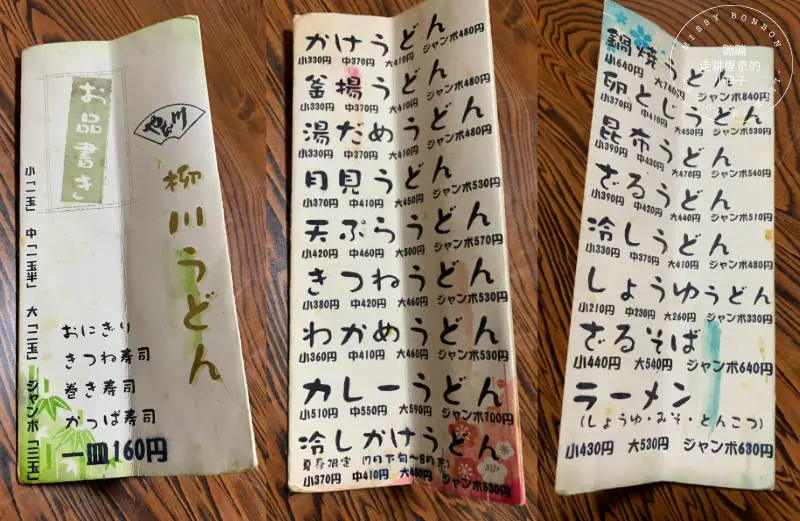 お品書き
やな川
柳川うどん
小「一玉」 中「一玉半」 大「二玉」 ジャンボ「三玉」
おにぎり
きつね寿司
巻き寿司
かっぱ寿司
一皿160円
かけうどん
小330円 中370円 大410円 ジャンボ480円
釜揚うどん
小330円 中370円 大410円 ジャンボ480円
湯だめうどん
小330円 中370円 大410円 ジャンボ480円
月見うどん
小370円 中410円 大450円 ジャンボ530円
天ぷらうどん
小420円 中460円 大500円 ジャンボ570円
きつねうどん
小380円 中420円 大460円 ジャンボ530円
わかめうどん
小360円 中410円 大460円 ジャンボ530円
カレーうどん
小510円 中550円 大590円 ジャンボ700円
冷しかけうどん
夏季限定 (7月下旬〜8月末)
小370円 中410円 大460円 ジャンボ530円
鍋焼うどん
小640円 大740円 ジャンボ840円
卵とじうどん
小370円 中410円 大450円 ジャンボ530円
昆布うどん
小390円 中430円 大470円 ジャンボ540円
ざるうどん
小390円 中420円 大440円 ジャンボ510円
冷しうどん
小330円 中370円 大410円 ジャンボ480円
しょうゆうどん
小210円 中230円 大260円 ジャンボ330円
ざるそば
小440円 大540円 ジャンボ640円
ラーメン
(しょうゆ・みそ・とんこつ)
小430円 大530円 ジャンボ630円
MISSY BONBON
蹦蹦
走跳東京的
日子